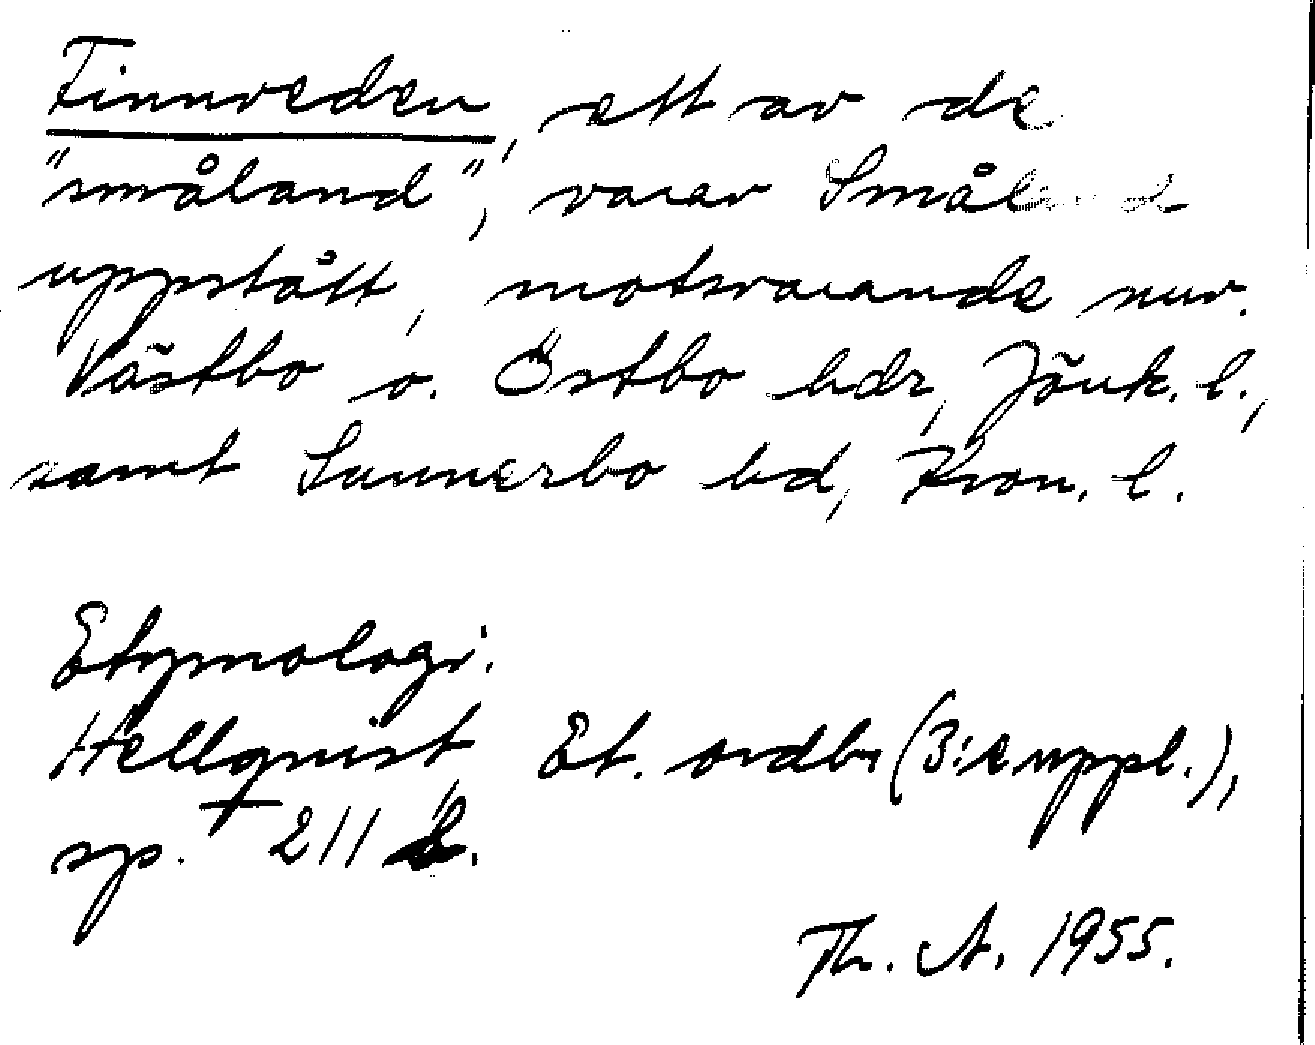 Finnveden, ett av de
"småland", varav Småland
uppstått, motsvarande nuv.
Västbo o. Östbo hdr, Jönk. l.,
samt Sunnerbo hd, Kron. l.
Etymologi.
Hellquist Et. ordb. (3:e uppl.),
sp. 211
Th. A. 1955.